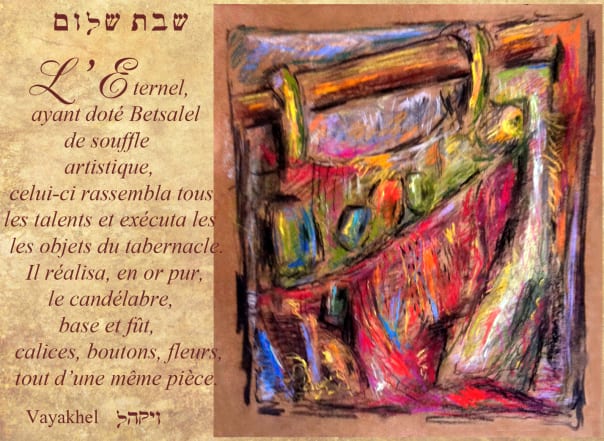 שבת שלום
L'Eternel,
ayant doté Betsalel
de souffle
artistique,
celui-ci rassembla tous
les talents et exécuta les
les objets du tabernacle.
Il réalisa, en or pur,
le candélabre,
base et fût,
calices, boutons, fleurs,
tout d'une même pièce.
Vayakhel ויקהל